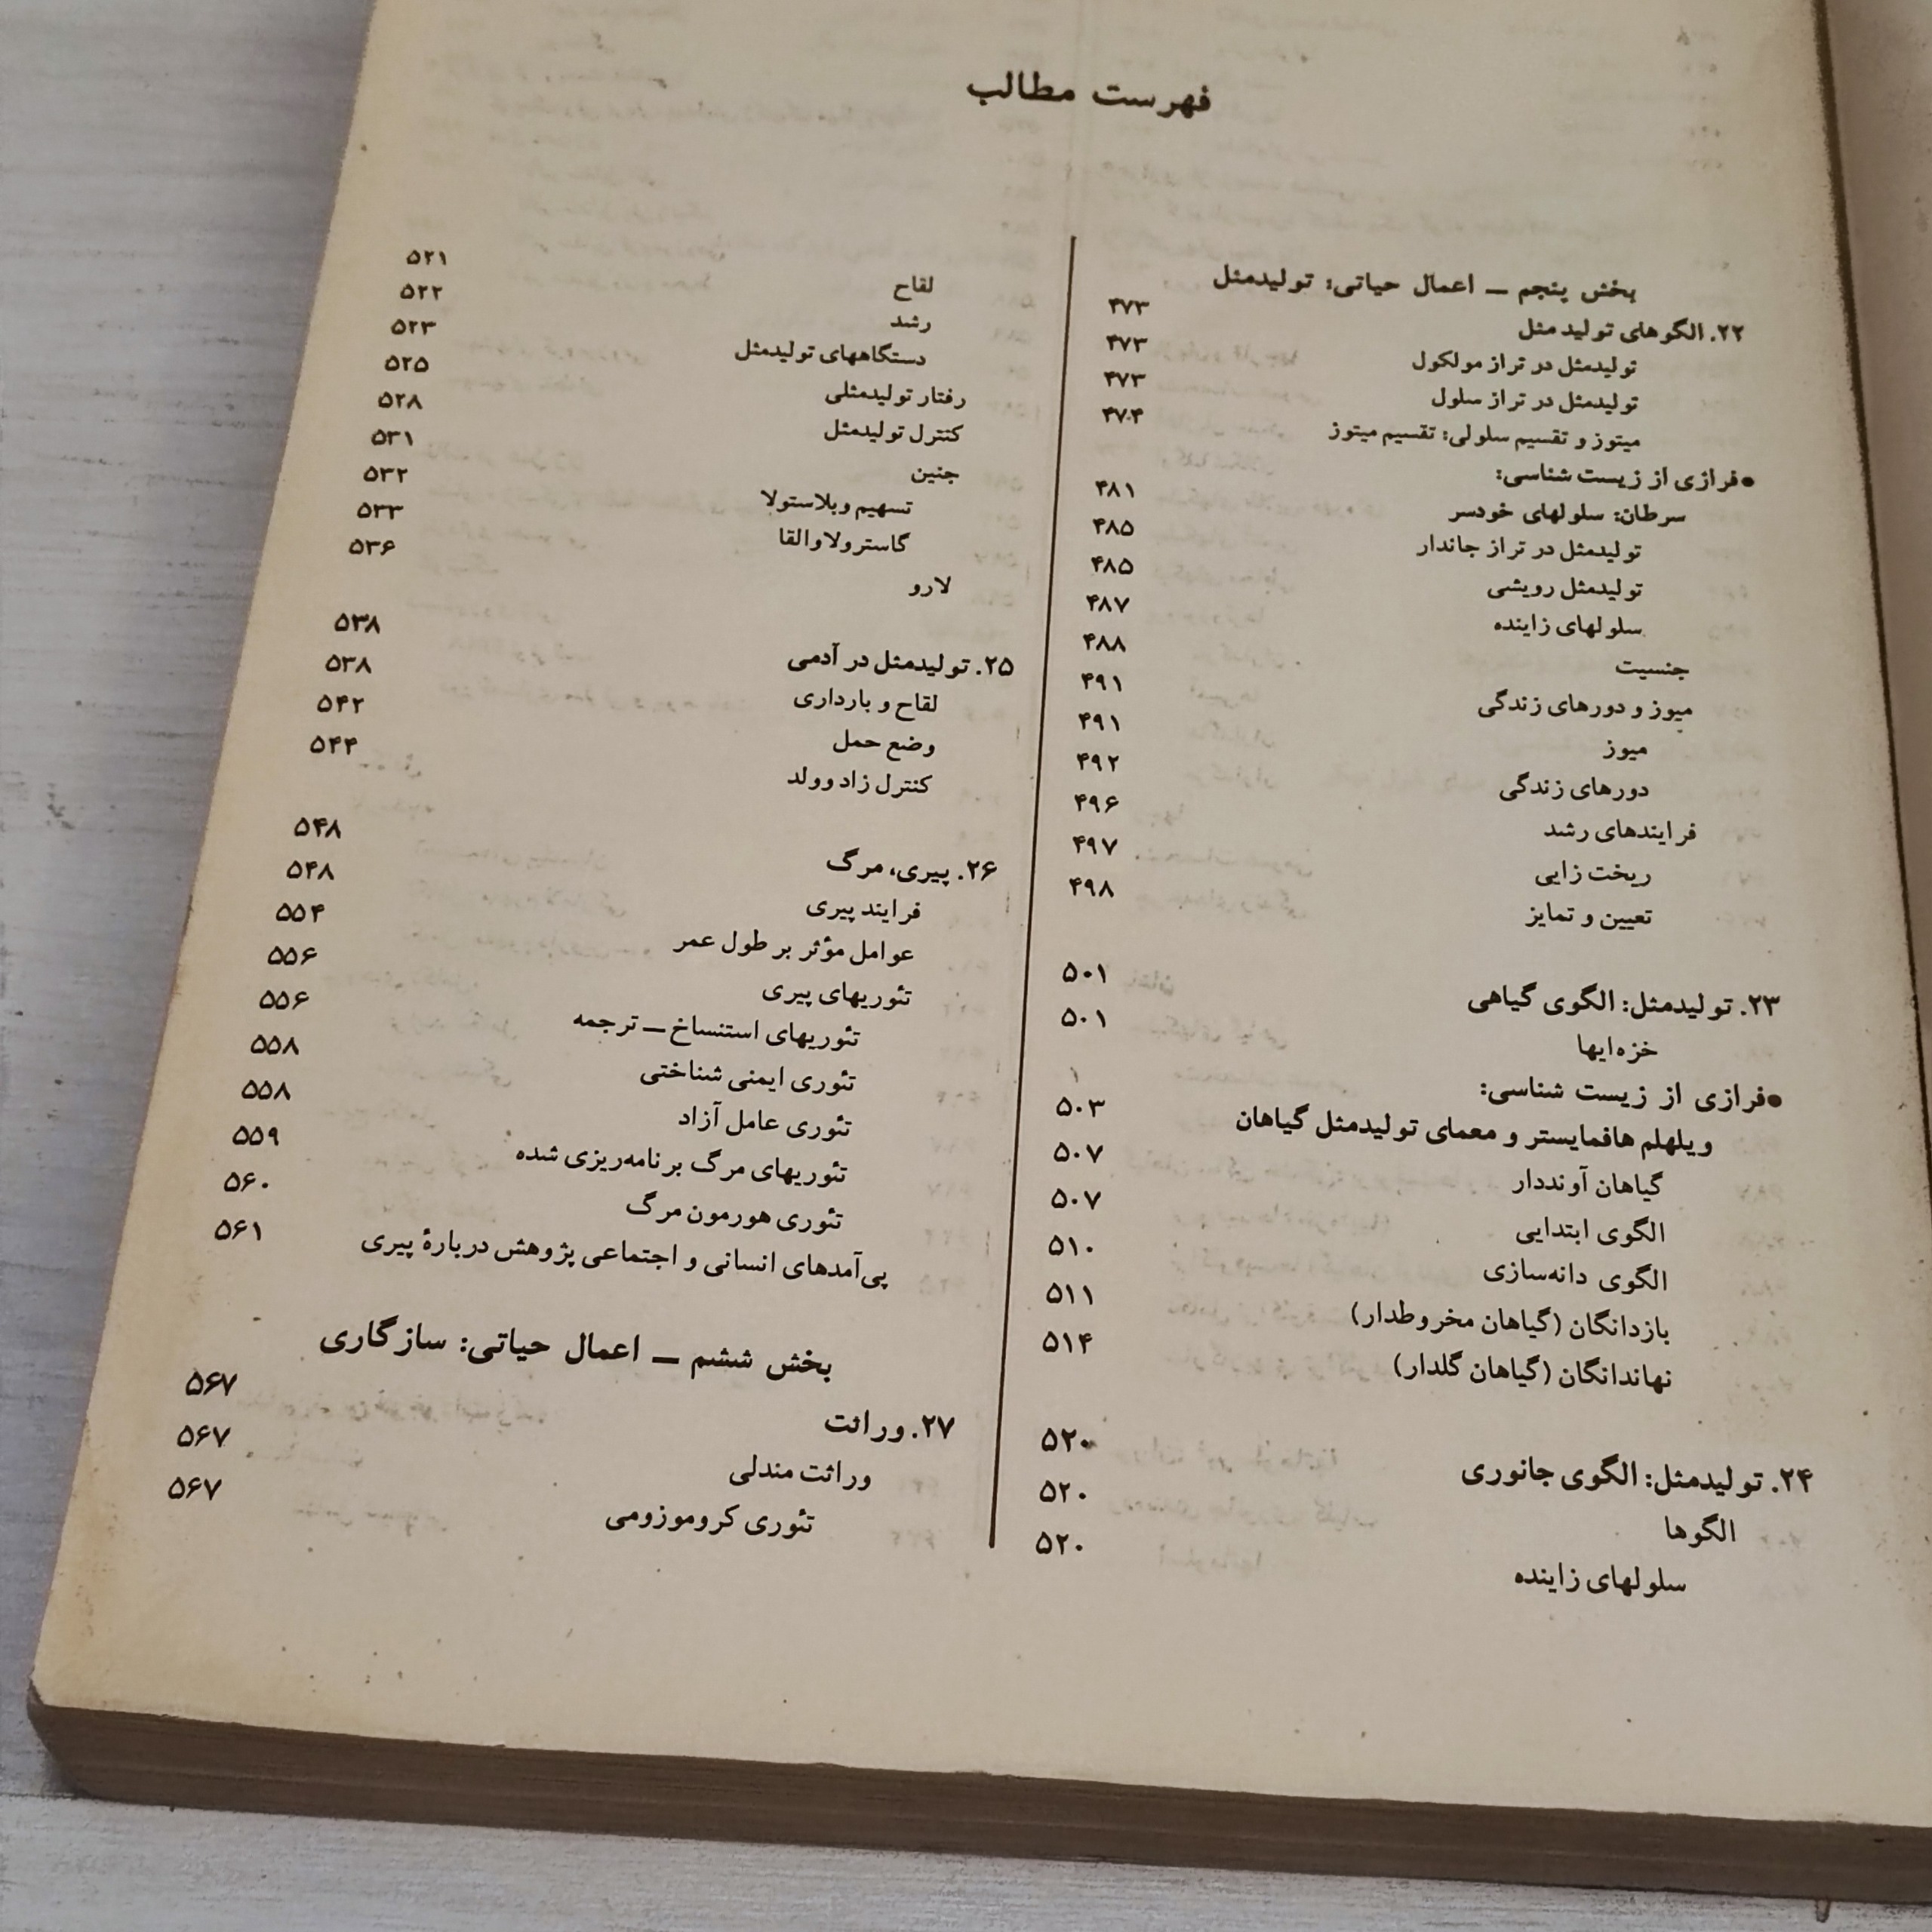 فهرست مطالب
بخش پنجم — اعمال حیاتی: تولیدمثل
۲۲. الگوهای تولید مثل ۴۷۳
تولیدمثل در تراز مولکول ۴۷۳
تولیدمثل در تراز سلول ۴۷۳
میتوز و تقسیم سلولی: تقسیم میتوز ۴۷۴
●فرازی از زیست شناسی:
سرطان: سلولهای خودسر ۴۸۱
تولیدمثل در تراز جاندار ۴۸۵
تولیدمثل رویشی ۴۸۵
سلولهای زاینده ۴۸۷
جنسیت ۴۸۸
میوز و دورهای زندگی ۴۹۱
میوز ۴۹۱
دورهای زندگی ۴۹۲
فرایندهای رشد ۴۹۶
ریخت زایی ۴۹۷
تعیین و تمایز ۴۹۸
۲۳. تولیدمثل: الگوی گیاهی ۵۰۱
خزه‌ایها ۵۰۱
●فرازی از زیست شناسی:
ویلهلم هافمایستر و معمای تولیدمثل گیاهان ۵۰۳
گیاهان آونددار ۵۰۷
الگوی ابتدایی ۵۰۷
الگوی دانه‌سازی ۵۱۰
بازدانگان (گیاهان مخروطدار) ۵۱۱
نهاندانگان (گیاهان گلدار) ۵۱۴
۲۴. تولیدمثل: الگوی جانوری ۵۲۰
الگوها ۵۲۰
سلولهای زاینده ۵۲۰
لقاح ۵۲۱
رشد ۵۲۲
دستگاههای تولیدمثل ۵۲۳
رفتار تولیدمثلی ۵۲۵
کنترل تولیدمثل ۵۲۸
جنین ۵۳۱
تسهیم وبلاستولا ۵۳۲
گاسترولاوالقا ۵۳۳
لارو ۵۳۶
۲۵. تولیدمثل در آدمی ۵۳۸
لقاح و بارداری ۵۳۸
وضع حمل ۵۴۲
کنترل زاد وولد ۵۴۴
۲۶. پیری، مرگ ۵۴۸
فرایند پیری ۵۴۸
عوامل مؤثر بر طول عمر ۵۵۴
تئوریهای پیری ۵۵۶
تئوریهای استنساخ — ترجمه ۵۵۶
تئوری ایمنی شناختی ۵۵۸
تئوری عامل آزاد ۵۵۸
تئوریهای مرگ برنامه‌ریزی شده ۵۵۹
تئوری هورمون مرگ ۵۶۰
پی‌آمدهای انسانی و اجتماعی پژوهش دربارهٔ پیری ۵۶۱
بخش ششم — اعمال حیاتی: سازگاری
۲۷. وراثت ۵۶۷
وراثت مندلی ۵۶۷
تئوری کروموزومی ۵۶۷